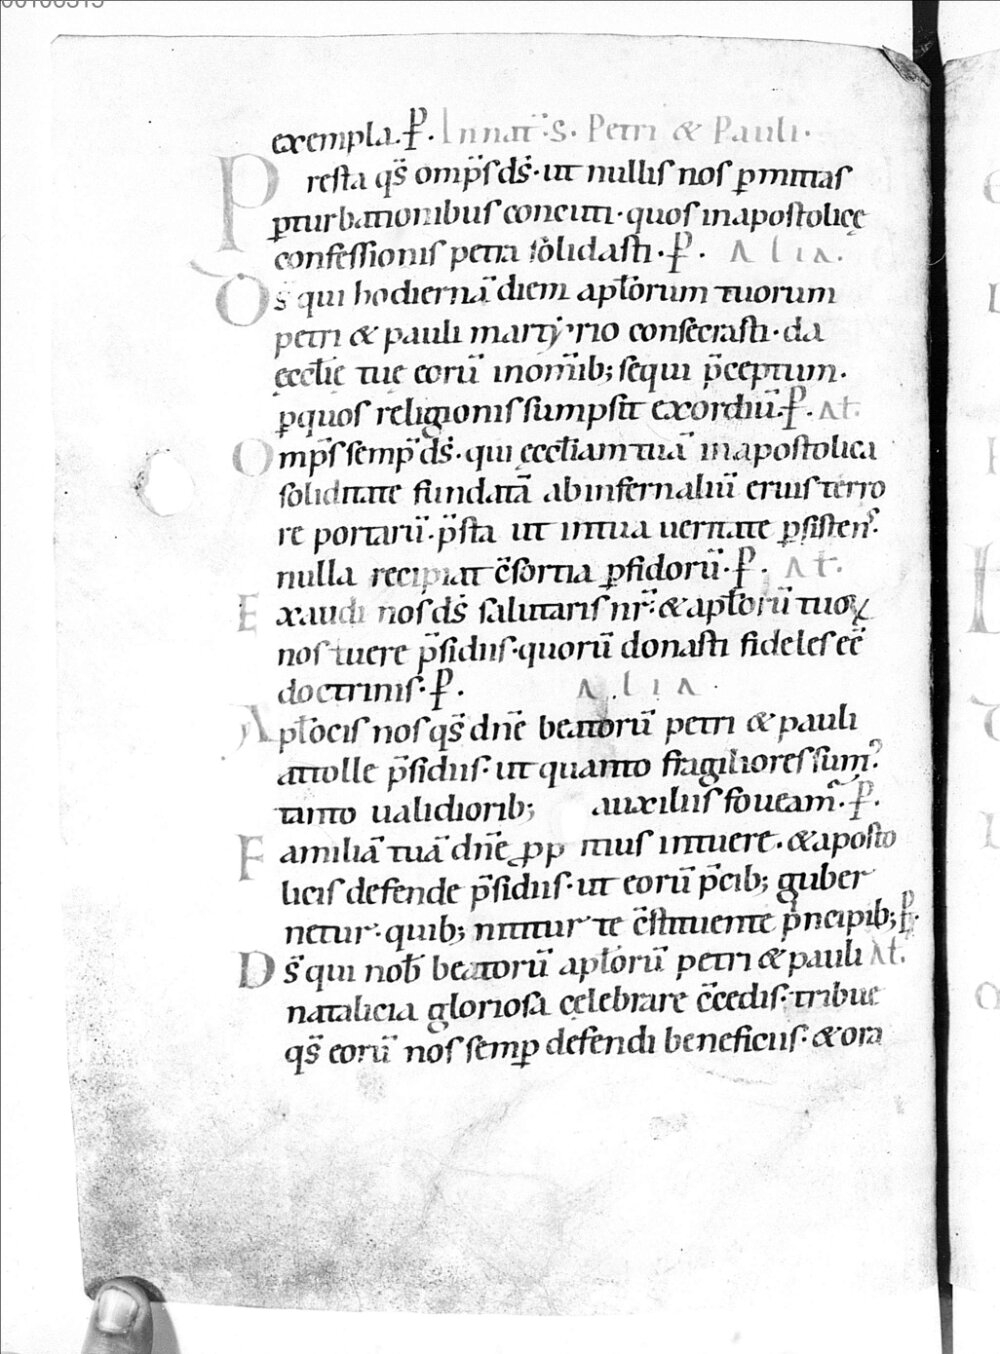 exempla. ꝑ. In nat̄. S. Petri & Pauli.
Presta qs̄ omps̄ ds̄. ut nullis nos ꝑmittas
ꝑturbationibus concuti. quos inapostolicę
confessionis petra solidasti. ꝑ. ALIA.
Ds̄ qui hodiernā diem apl̄orum tuorum
petri & pauli martyrio consecrasti. da
ęccl̄ię tuę eorū inomīb; sequi p̄ceptum.
ꝑquos religionis sumpsit exordiū. ꝑ. AL̄.
Omps̄ semp̄ ds̄. qui ęccl̄iam tuā inapostolica
soliditate fundatā abinfernaliū eruis terro
re portarū. p̄sta ut intua ueritate ꝑsisten̄s.
nulla recipiat c̄sortia ꝑfidorū. ꝑ. AL̄.
Exaudi nos ds̄ salutaris nr̄. & apl̄orū tuoꝝ
nos tuere p̄sidiis. quorū donasti fideles eē
doctrinis. ꝑ. ALIA.
Apl̄icis nos qs̄ dn̄e beatorū petri & pauli
attolle p̄sidiis. ut quanto fragiliores sum᷒.
tanto ualidiorib; auxiliis foueam᷒. ꝑ.
Familiā tuā dn̄e ꝓpitius intuere. & aposto
licis defende p̄sidiis. ut eorū p̄cib; guber
netur. quib; nititur te c̄stituente p̄ncipib; ꝑ.
Ds̄ qui nob̄ beatorū apl̄orū petri & pauli AL̄.
natalicia gloriosa celebrare c̄cedis. tribue
qs̄ eorū nos semꝑ defendi beneficiis. & ora